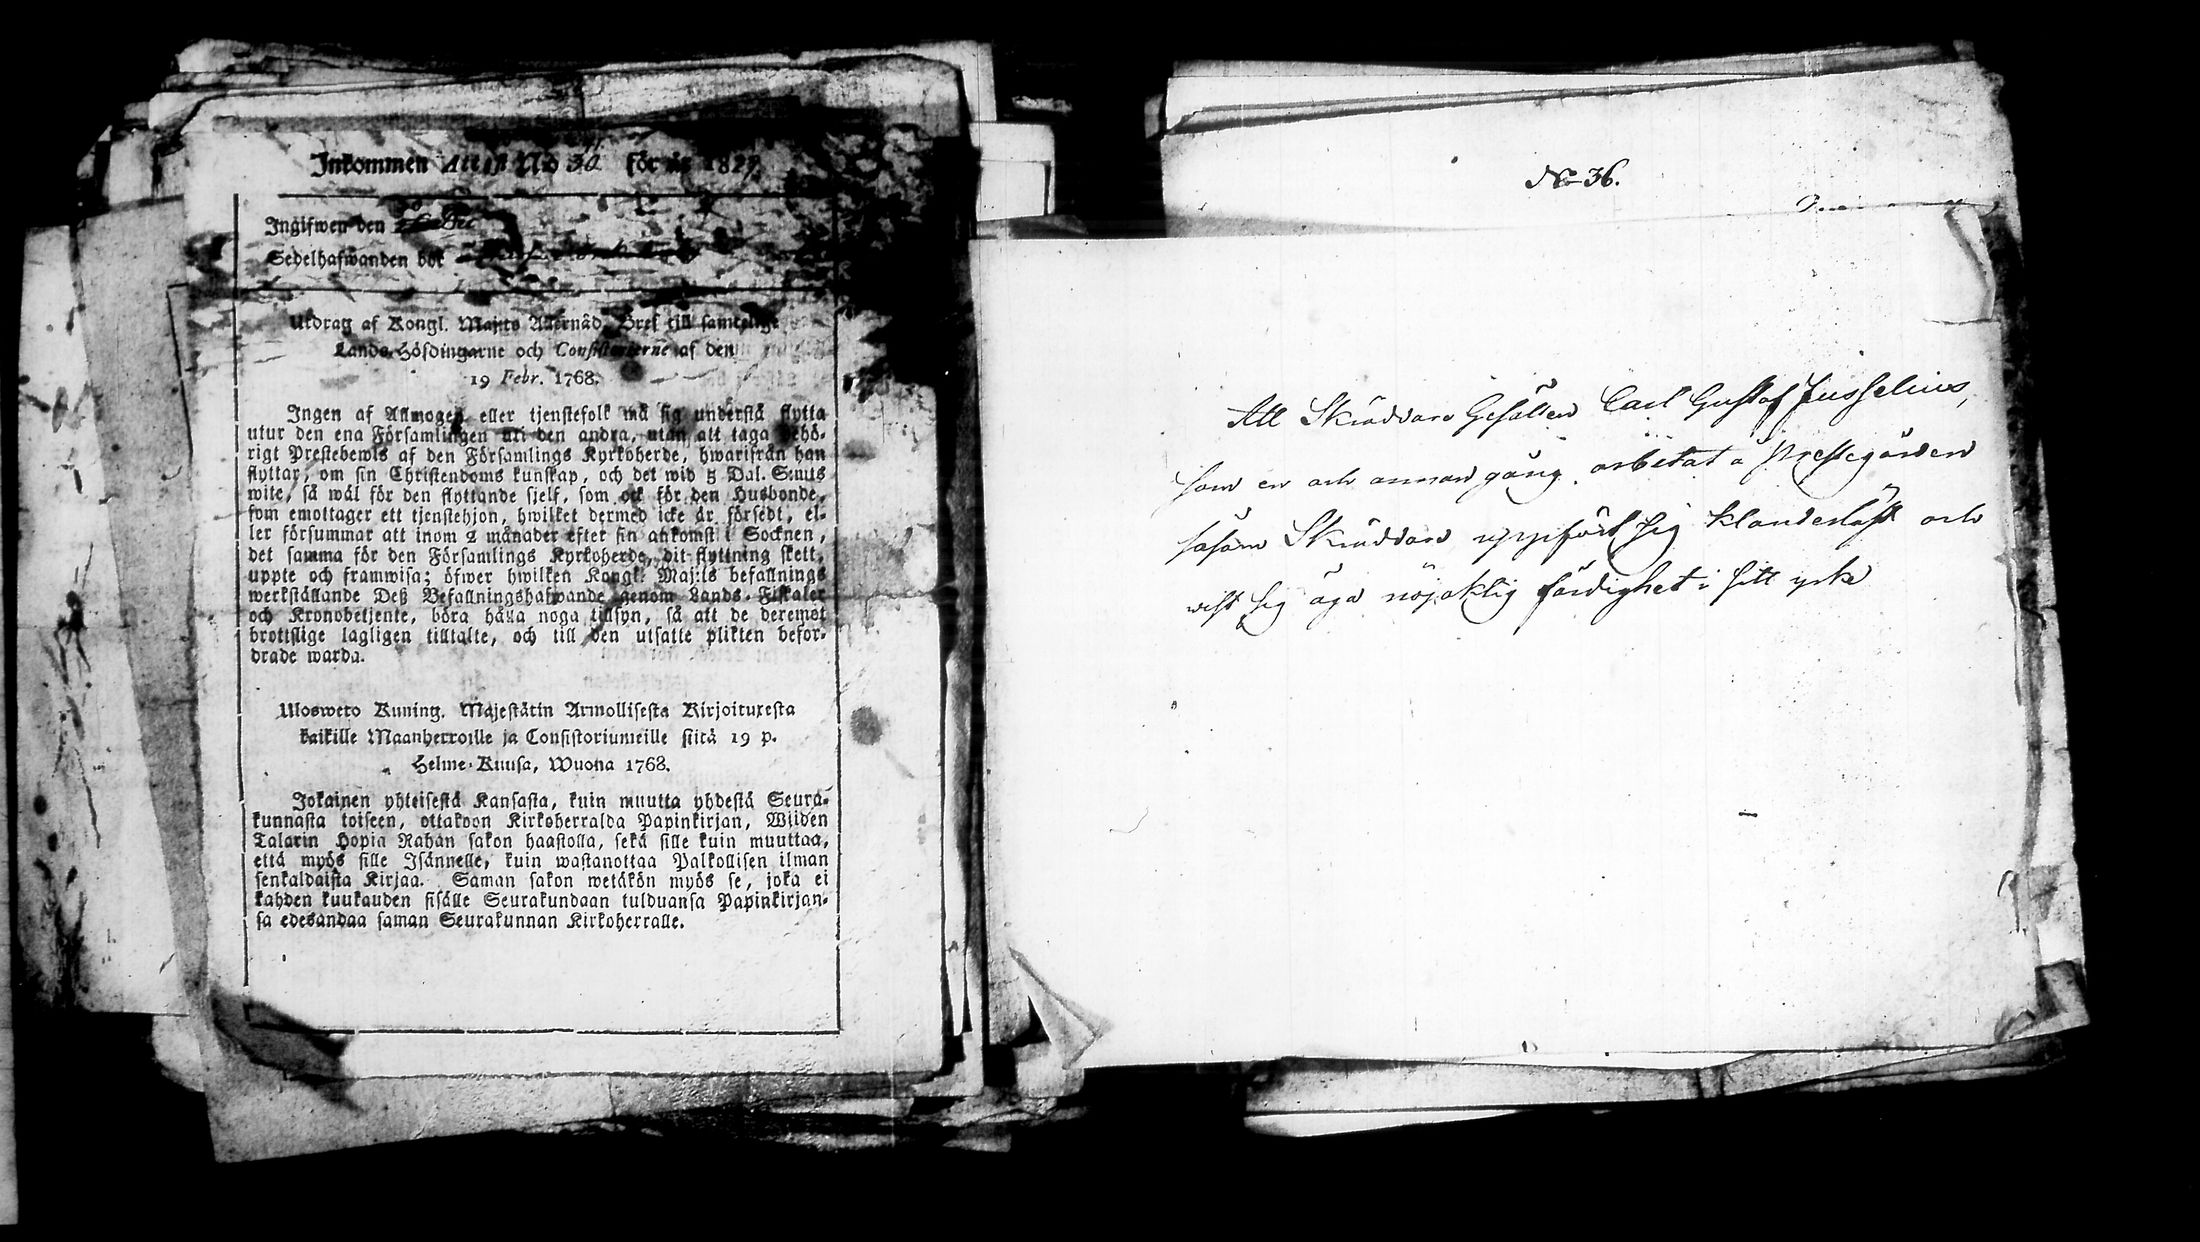 Inkommen Attest No för år 1827.
Ingifwen den
Sedelhafwanden bör
Utdrag af Kongl. Maj:ts Allernåd. Bref till samtelige
Lands-Höfdingarne och Consistorierne af den
19 Febr. 1768.
Ingen af Allmogen eller tjenstefolk må sig understå flytta
utur den ena Församlingen uti den andra, utan att taga behö-
rigt Prestebewis af den Församlings Kyrkoherde, hwarifrån han
flyttar, om sin Christendoms kunskap, och det wid 5 Dal. S:mts
wite, så wäl för den flyttande sjelf, som ock för den Husbonde,
som emottager ett tjenstehjon, hwilket dermed icke är försedt, el-
ler försummar att inom 2 månader efter sin ankomst i Socknen,
det samma för den Församlings Kyrkoherde, dit flyttning skett,
uppte och framwisa; öfwer hwilken Kongl. Maj:ts befallnings
werkställande Deß Befallningshafwande genom Lands-Fiskaler
och Kronobetjente, böra hålla noga tillsyn, så att de deremot
brottslige lagligen tilltalte, och till den utsatte plikten befor-
drade warda.
Ulosweto Kuning. Majestätin Armollisesta Kirjoituxesta
kaikille Maanherroille ja Consistoriumeille siitä 19 p.
Helme-Kuusa, Wuona 1768.
Jokainen yhteisestä Kansasta, kuin muutta yhdestä Seura-
kunnasta toiseen, ottakoon Kirkoherralda Papinkirjan, Wiiden
Talarin Hopia Rahan sakon haastolla, sekä sille kuin muuttaa,
että myös sille Isännelle, kuin wastanottaa Palkollisen ilman
senkaldaista Kirjaa. Saman sakon wetäkön myös se, joka ei
kahden kuukauden sisälle Seurakundaan tulduansa Papinkirjan-
sa edesandaa saman Seurakunnan Kirkoherralle.
No 36.
Att Skräddare Gesällen Carl Gustaf Jusselius,
som en och annan gång arbetat å Prestegården
såsom Skräddare uppfört sig klanderlöst och
wist sig äga nöjaktig färdighet i sitt yrke